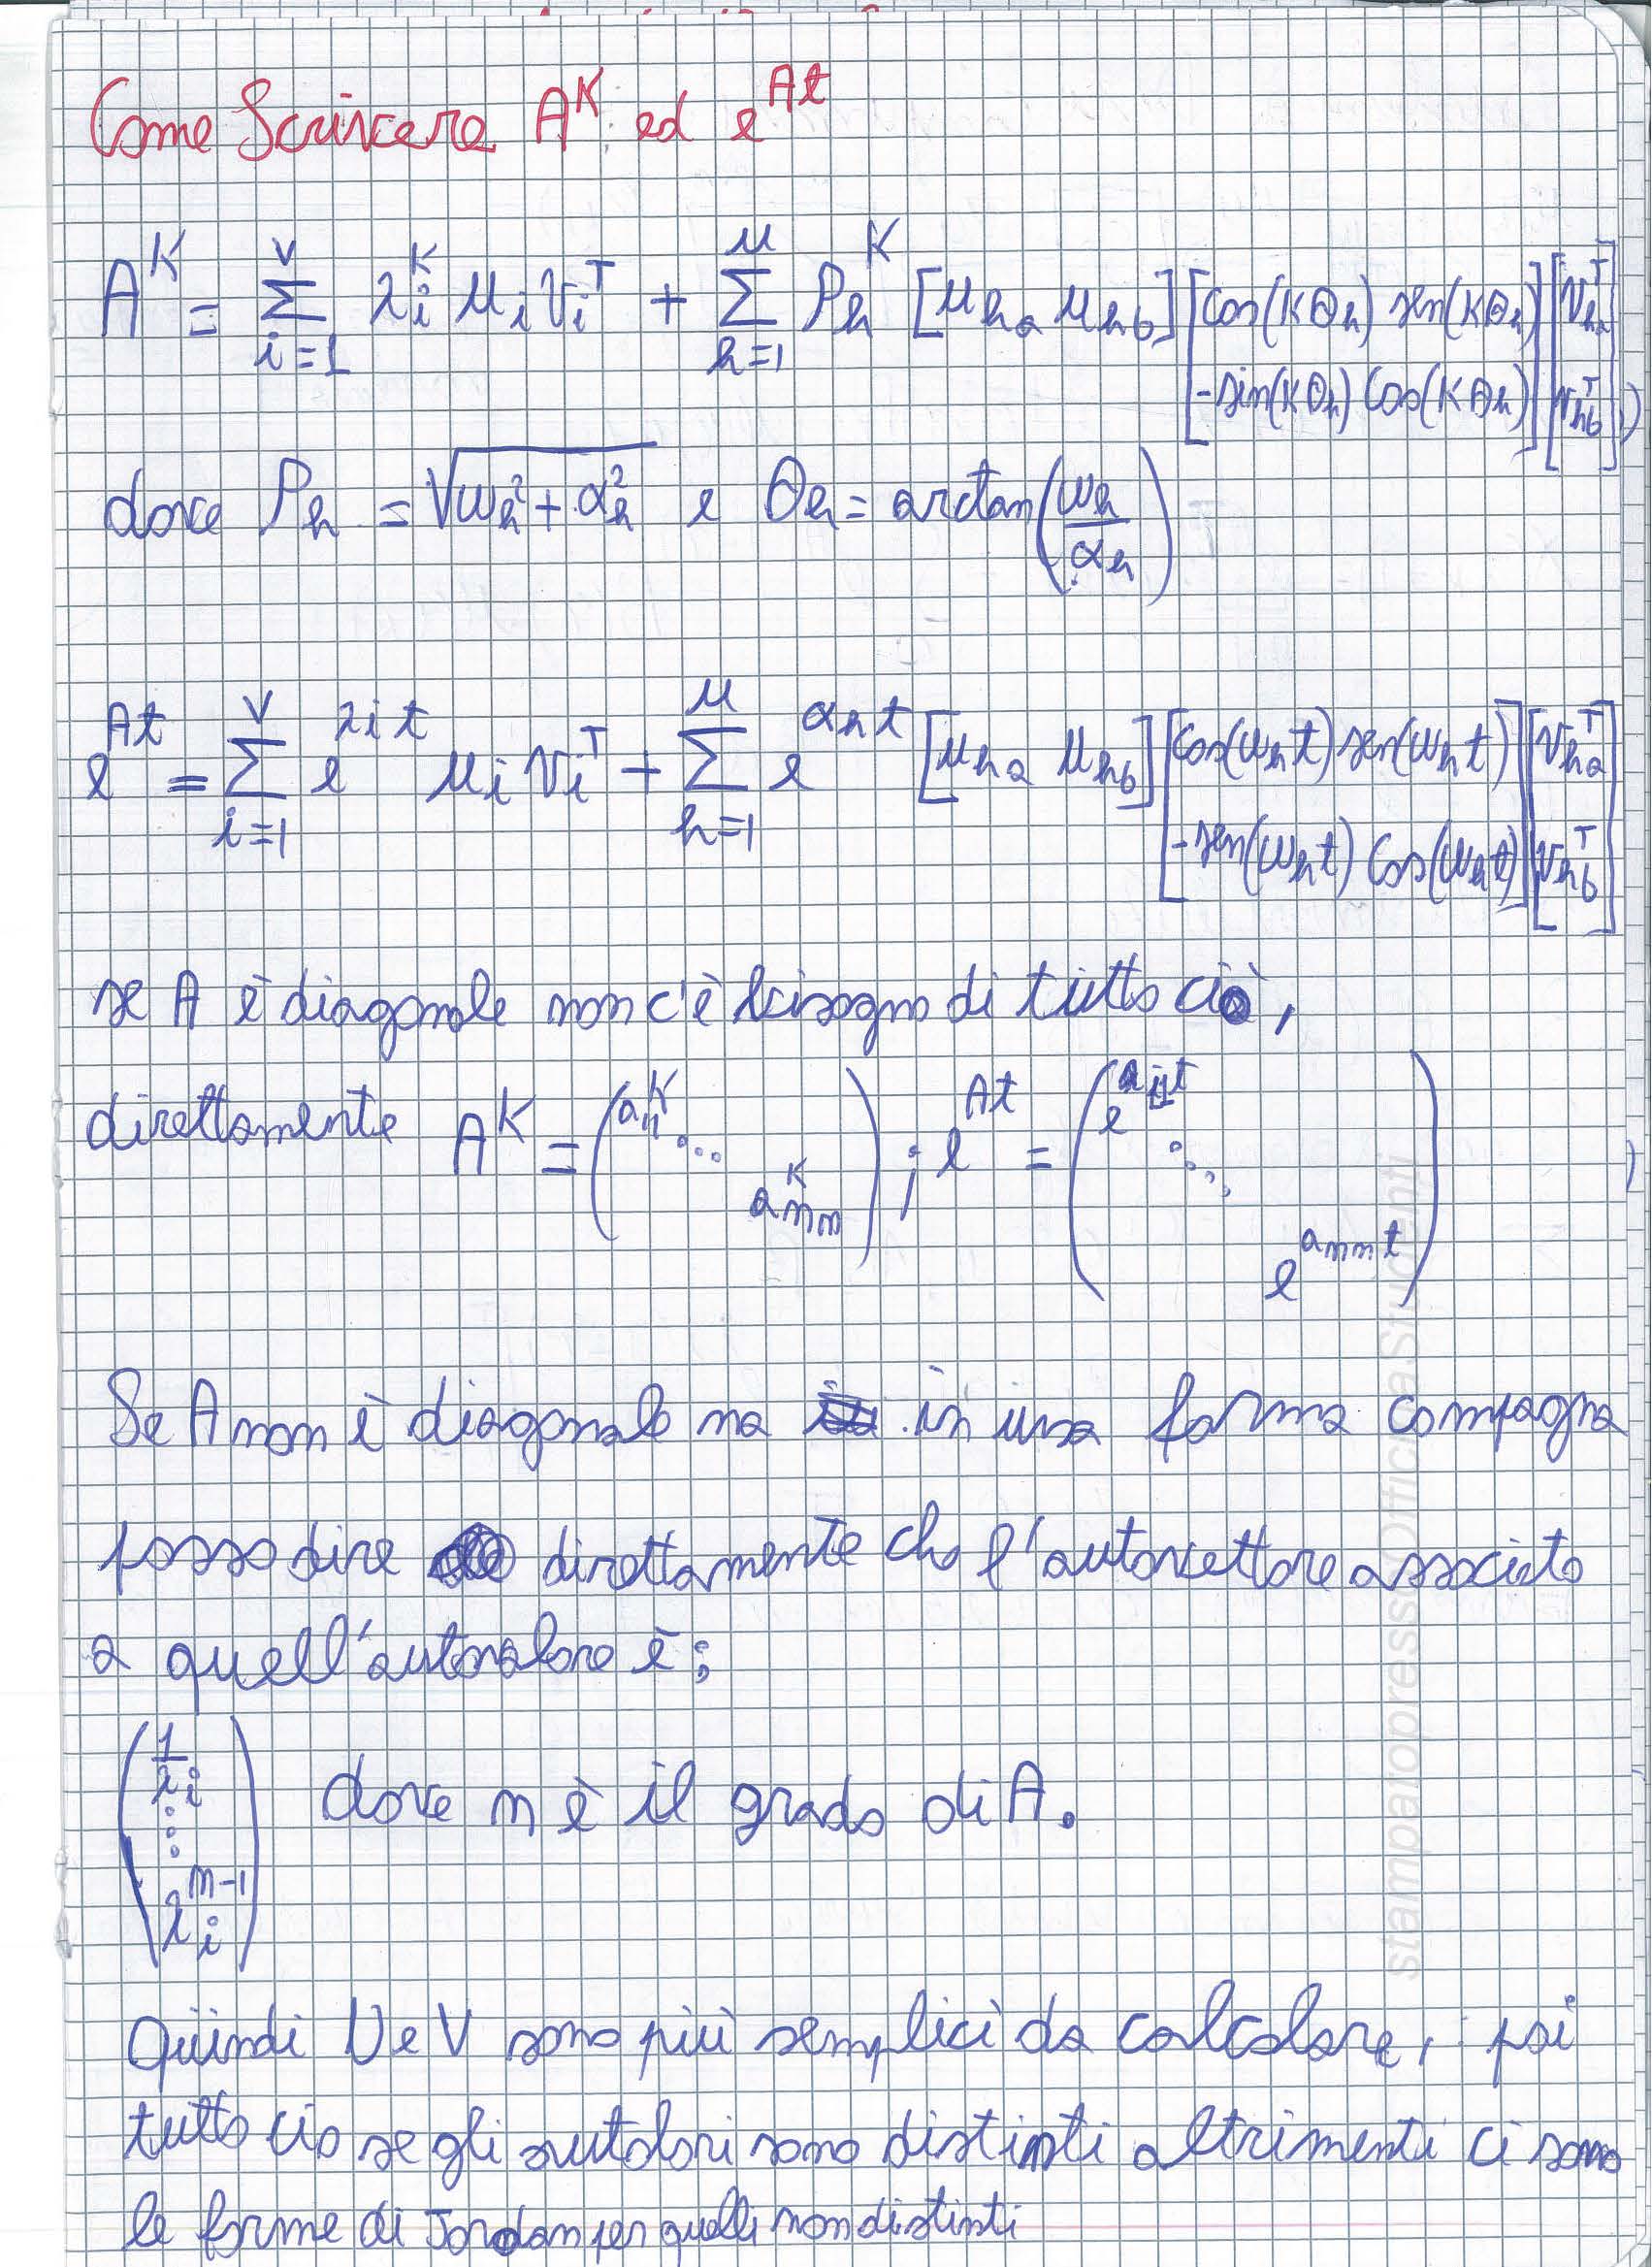 Come Scrivere A^K ed e^At
A^K = Σ_{i=1}^{ν} λ_i^K u_i v_i^T + Σ_{h=1}^{μ} ρ_h^K [u_ha u_hb] [cos(Kθ_h) sen(Kθ_h)] [v_ha^T]
[-sin(Kθ_h) cos(Kθ_h)] [v_hb^T]
dove ρ_h = √(ω_h^2 + α_h^2) e θ_h = arctan(ω_h/α_h)
e^At = Σ_{i=1}^{ν} e^{λ_i t} u_i v_i^T + Σ_{h=1}^{μ} e^{α_h t} [u_ha u_hb] [cos(ω_h t) sen(ω_h t)] [v_ha^T]
[-sen(ω_h t) cos(ω_h t)] [v_hb^T]
se A è diagonale non c'è bisogno di tutto ciò,
direttamente A^K = (a_11^K ⋱ a_nn^K) ; e^At = (e^{a_11 t} ⋱ e^{a_nn t})
Se A non è diagonale ma in una forma compagna
posso dire direttamente che l'autovettore associato
a quell'autovalore è:
(1 λ_i ⋮ λ_i^{n-1}) dove n è il grado di A.
Quindi U e V sono più semplici da calcolare, poi
tutto ciò se gli autolori sono distinti altrimenti ci sono
le forme di Jordan per quelli non distinti
stampatopressoOfficinaStudenti